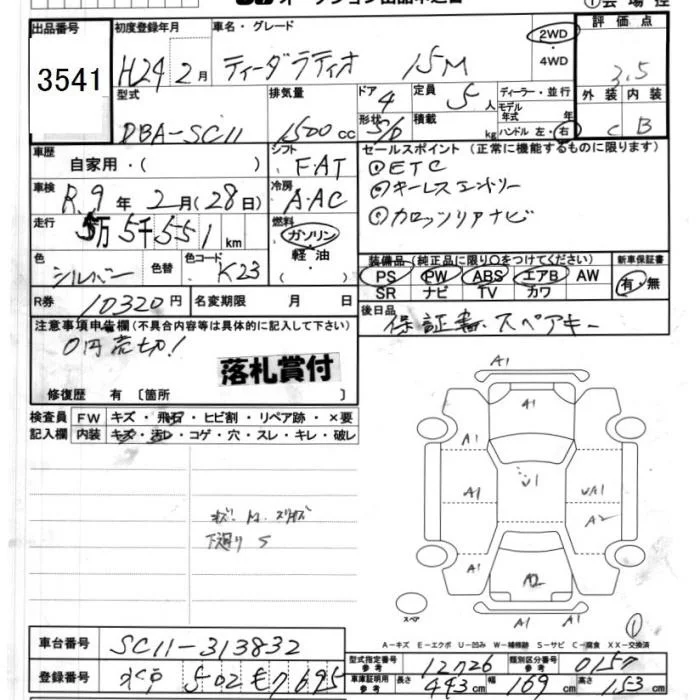 出品番号 初度登録年月 車名・グレード ①会場控
3541 H24 2月 ティーダラティオ 15M 2WD ・ 4WD 評価点 3.5
型式 排気量 ドア 4 定員 5人 ディーラー・並行 外装 内装
DBA-SC11 1500cc 形状 5/D 積載 kg モデル年式 年 ハンドル 左・右 C B
車歴 自家用・( ) シフト F・AT セールスポイント(正常に機能するものに限ります)
車検 R.9年 2月(28日) 冷房 A・AC ①ETC
②キーレスエントリー
走行 5万5千551km 燃料 ガソリン・軽・油・( ) ③カロッツリアナビ
色 シルバー 色替 色コード K23 装備品(純正品に限り○をつけてください) 新車保証書
PS PW ABS エアB AW 有・無
SR ナビ TV カワ
R券 10320円 名変期限 月 日 後日品 保証書、スペアキー
注意事項申告欄(不具合内容等は具体的に記入して下さい)
0円売切!
落札賞付
修復歴 有 〔箇所 〕
検査員 FW キズ・飛石・ヒビ割・リペア跡・×要
記入欄 内装 キズ・汚レ・コゲ・穴・スレ・キレ・破レ
A1
A1
A1 A1
U1
A1 UA1
A2
A1 A2 A1
スペア ①
A1
A-キズ E-エクボ U-凹み W-補修跡 S-サビ C-腐食 XX-交換済
車台番号 SC11-313832
型式指定番号 参考 12726 類別区分番号 参考 0157
登録番号 水戸 502 も 7695
車庫証明用 参考 長さ 443cm 幅 169cm 高さ 153cm